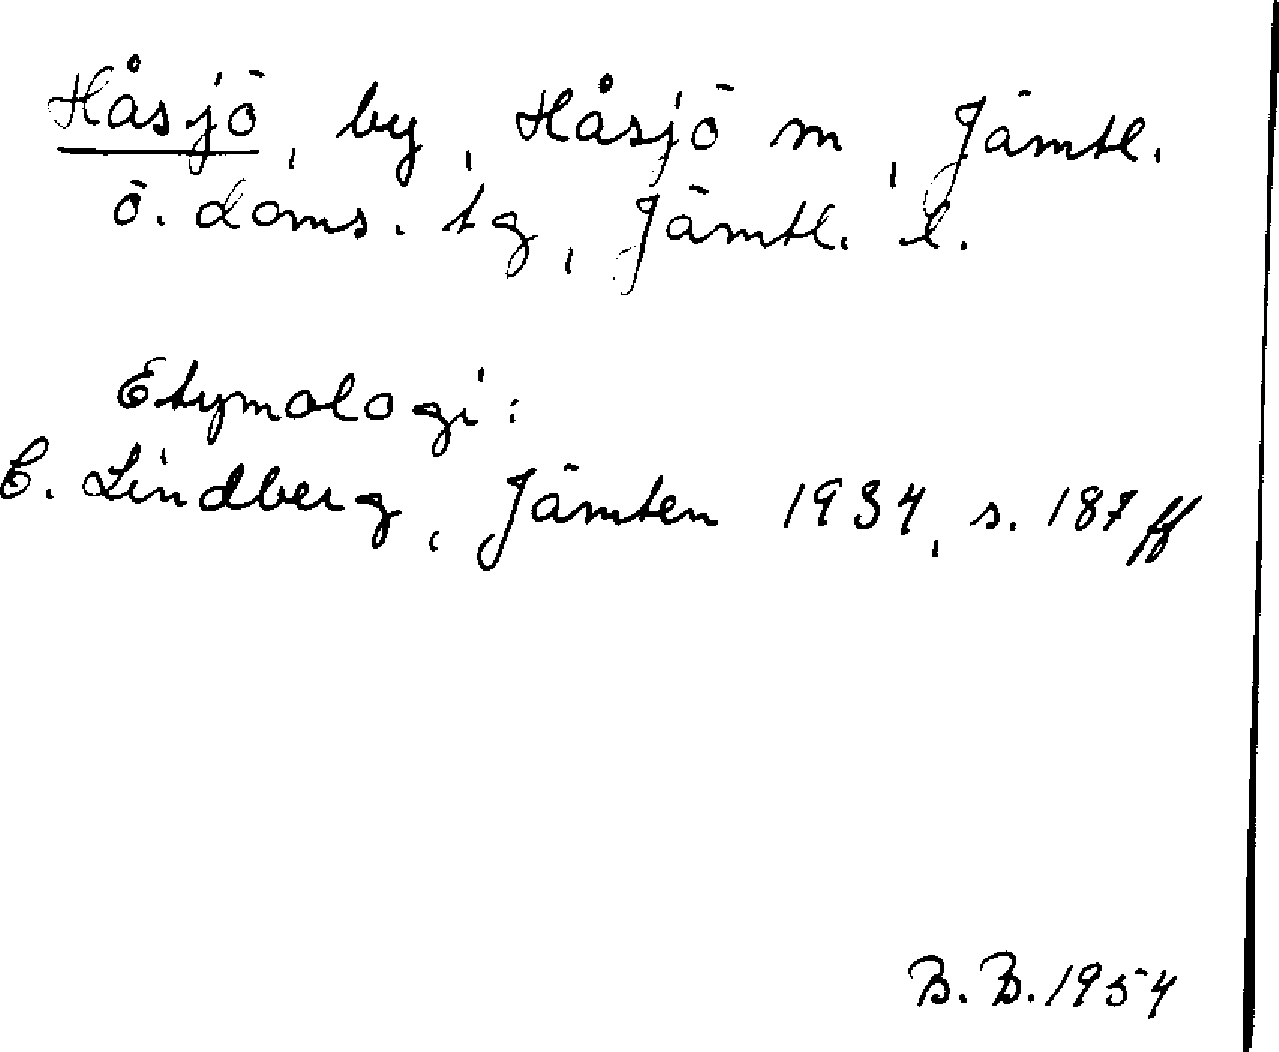 Håsjö, by, Håsjö sn, Jämtl.
ö. doms. tg, Jämtl. l.
Etymologi:
C. Lindberg, Jämten 1934, s. 187 ff
B. B. 1954